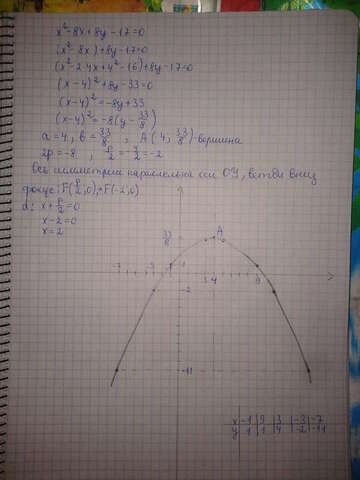 x²-8x+8y-17=0
(x²-8x)+8y-17=0
(x²-2·4x+4²-16)+8y-17=0
(x-4)²+8y-33=0
(x-4)²=-8y+33
(x-4)²=-8(y-33/8)
a=4, b=33/8, A(4; 33/8)-вершина
2p=-8, p/2=-4/2=-2
Ось симметрии параллельна оси OY, ветви вниз
фокус: F(p/2,0), F(-2,0)
d: x+p/2=0
x-2=0
x=2
33/8 A
-7 1 3 4 9
-2
-11
x -1 9 3 -3 -7
y 1 1 4 -2 -11